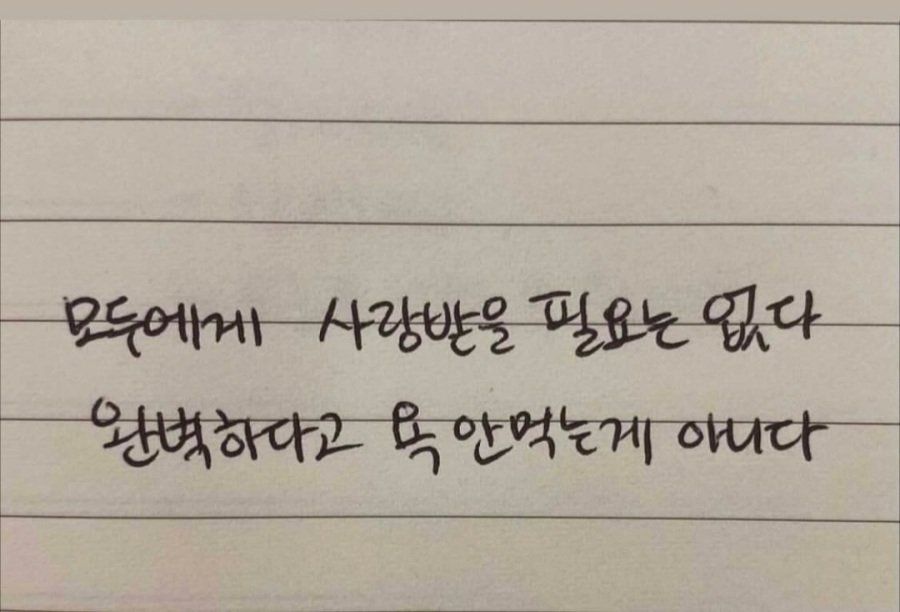 모두에게 사랑받을 필요는 없다
완벽하다고 욕 안먹는게 아니다